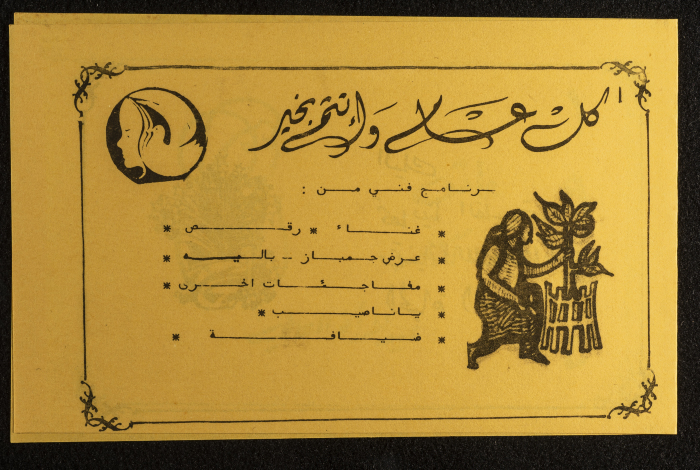 كل عام وانتم بخير
برنامج فني من :
* غناء * رقص *
* عرض جمباز - باليه *
* مفاجئات اخرى *
* يانصيب *
* ضيافة *